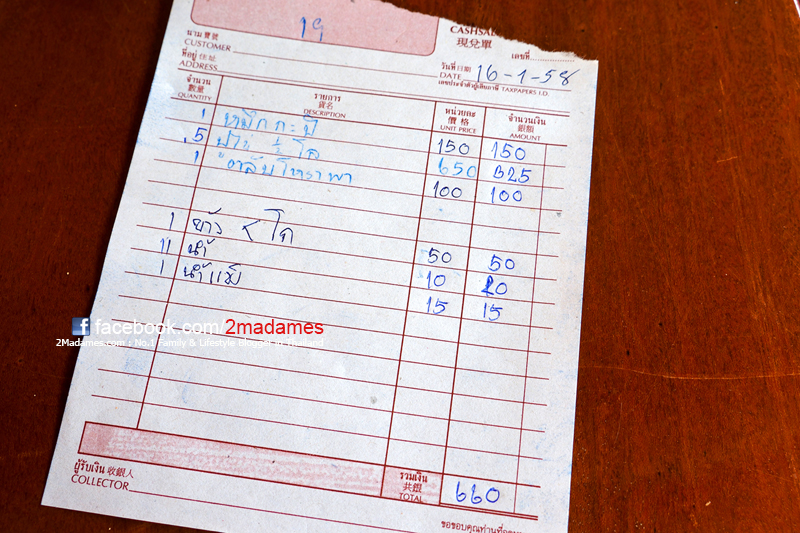 19
CASHSALE
現兌單
นาม 寶號
CUSTOMER
เลขที่
ที่อยู่ 住址
ADDRESS
วันที่ 日期
DATE 16-1-58
เลขประจำตัวผู้เสียภาษี TAXPAPERS I.D.
จำนวน 數量 QUANTITY รายการ 貨名 DESCRIPTION หน่วยละ 價格 UNIT PRICE จำนวนเงิน 銀額 AMOUNT
1 หมึกกะปิ 150 150
.5 ปู ½ โล 650 325
1 หอยตลับโหราพา 100 100
1 ข้าว โถ 50 50
11 น้ำ 10 20
1 น้ำแข็ง 15 15
facebook.com/2madames
2Madames.com : No.1 Family & Lifestyle Blogger in Thailand
ผู้รับเงิน 收銀人
COLLECTOR
รวมเงิน 共銀 TOTAL 660
ขอขอบคุณท่านที่